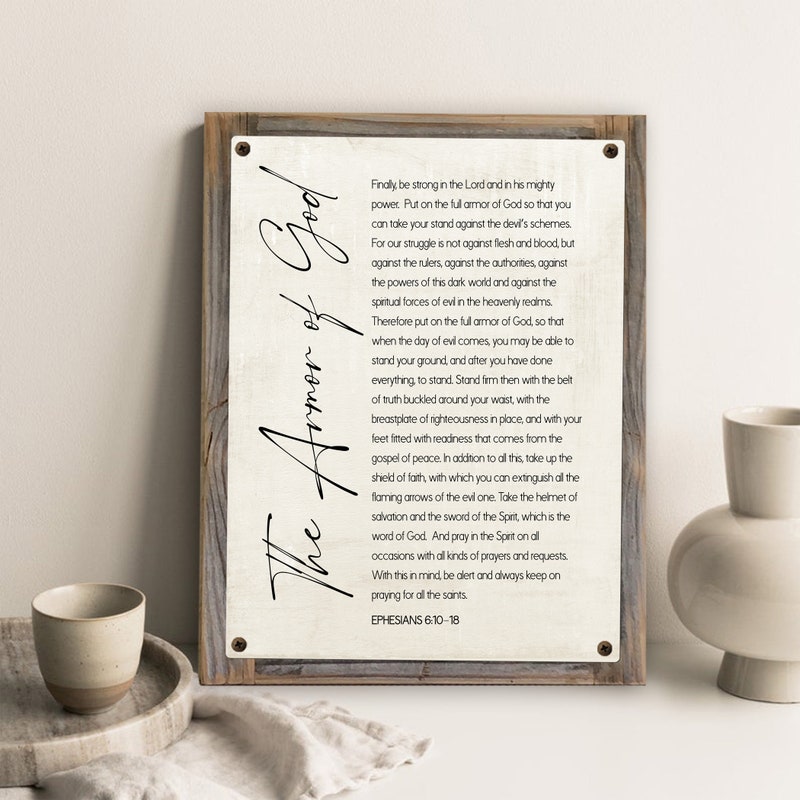 The Armor of God
Finally, be strong in the Lord and in his mighty
power. Put on the full armor of God so that you
can take your stand against the devil's schemes.
For our struggle is not against flesh and blood, but
against the rulers, against the authorities, against
the powers of this dark world and against the
spiritual forces of evil in the heavenly realms.
Therefore put on the full armor of God, so that
when the day of evil comes, you may be able to
stand your ground, and after you have done
everything, to stand. Stand firm then with the belt
of truth buckled around your waist, with the
breastplate of righteousness in place, and with your
feet fitted with readiness that comes from the
gospel of peace. In addition to all this, take up the
shield of faith, with which you can extinguish all the
flaming arrows of the evil one. Take the helmet of
salvation and the sword of the Spirit, which is the
word of God. And pray in the Spirit on all
occasions with all kinds of prayers and requests.
With this in mind, be alert and always keep on
praying for all the saints.
EPHESIANS 6:10-18